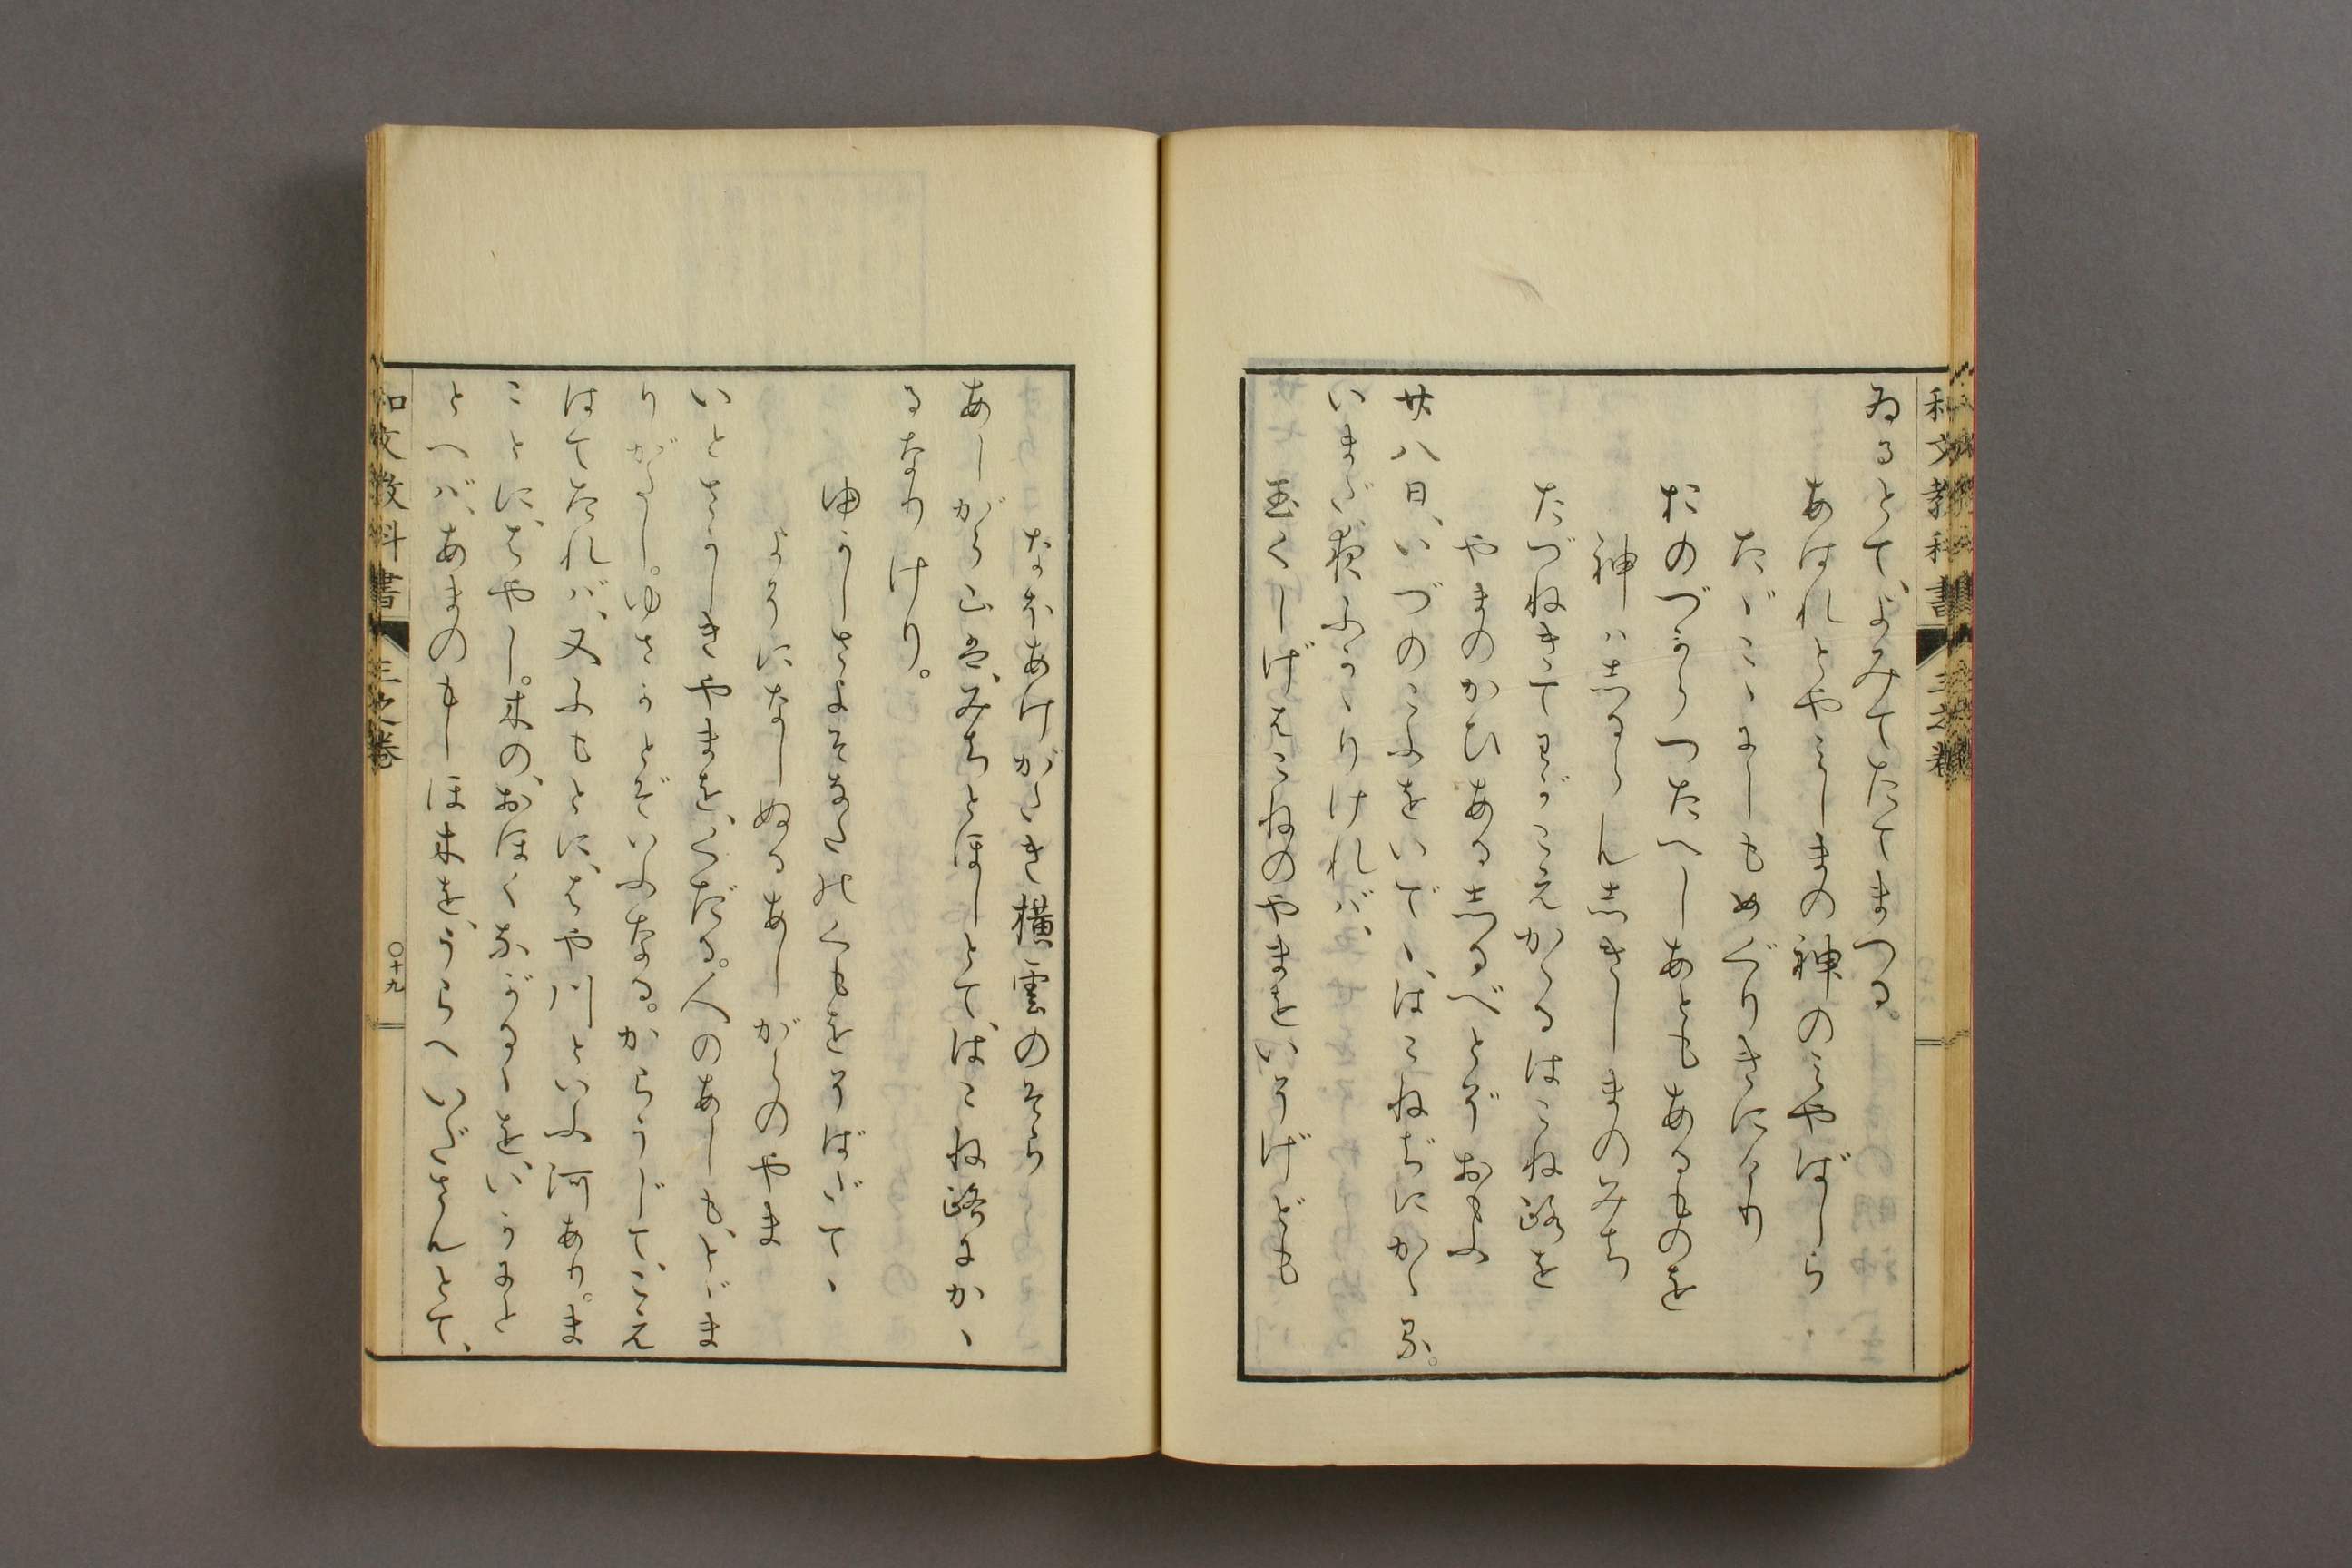 和文教科書 三之巻
ゐるとて、よみてたてまつる。
あはれとやみしまの神のみやばしら
たゞこゝにしもめぐりきにけり
おのづからつたへしあともあるものを
神ハしるらんしきしまのみち
たづねきてわがこえかゝるはこね路を
やまのかひあるしるべとぞおもふ
廿八日、いづのこふをいでゝ、はこねぢにかゝる。
いまだ夜ふかゝりけれバ、
玉くしげはこねのやまをいそげども
なほあけがたき横雲のそら
あしがら山は、みちとほしとて、はこね路にかゝ
るなりけり。
ゆかしさよそなたのくもをそばだてゝ
よそになしぬるあしがらのやま
いとさかしきやまを、くだる。人のあしも、とゞま
りがたし。ゆさかとぞいふなる。からうじて、こえ
はてたれバ、又ふもとに、はや川といふ河あり。ま
ことに、はやし。木の、おほくながるゝを、いかにと
とへバ、あまのもしほ木を、うらへいださんとて、
和文教科書 三之巻 〇十九